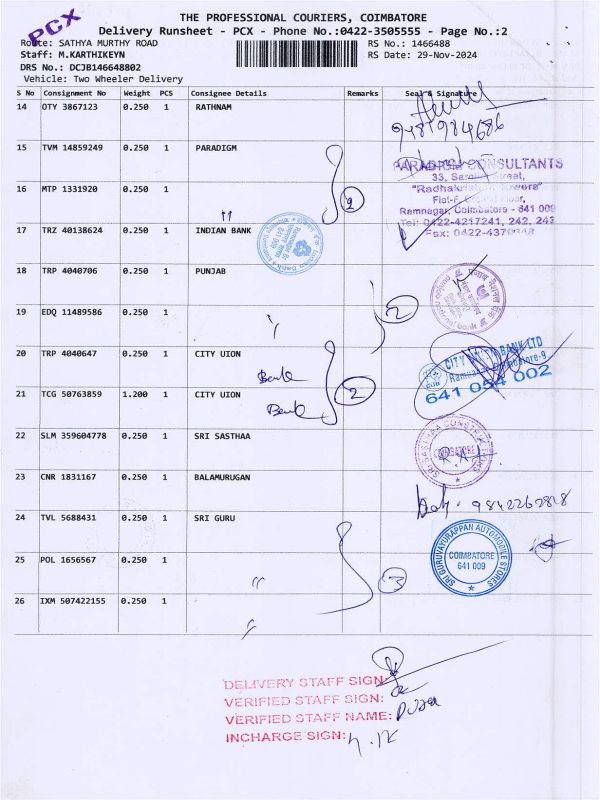 PCX
THE PROFESSIONAL COURIERS, COIMBATORE
Delivery Runsheet - PCX - Phone No.:0422-3505555 - Page No.:2
Route: SATHYA MURTHY ROAD
RS No.: 1466488
Staff: M.KARTHIKEYN
RS Date: 29-Nov-2024
DRS No.: DCJB146648802
Vehicle: Two Wheeler Delivery
S No Consignment No Weight PCS Consignee Details Remarks Seal & Signature
14 OTY 3867123 0.250 1 RATHNAM
9487984686
15 TVM 14859249 0.250 1 PARADIGM
PARADIGM CONSULTANTS
33, Street,
"Radhakrishna Towers"
16 MTP 1331920 0.250 1
Ramnagar, Coimbatore - 641 009
Tel: 0422-4217241, 242, 243
Fax: 0422-4379348
17 TRZ 40138624 0.250 1 INDIAN BANK
18 TRP 4040706 0.250 1 PUNJAB
19 EDQ 11489586 0.250 1
2
20 TRP 4040647 0.250 1 CITY UION
Bank
CITY UNION BANK LTD
Coimbatore-9.
641 054 002
21 TCG 50763859 1.200 1 CITY UION
Bank
2
22 SLM 359604778 0.250 1 SRI SASTHAA
COIMBATORE
23 CNR 1831167 0.250 1 BALAMURUGAN
24 TVL 5688431 0.250 1 SRI GURU
SRI GURUVAYURAPPAN AUTOMOBILE STORES
COIMBATORE
641 009
25 POL 1656567 0.250 1
3
26 IXM 507422155 0.250 1
DELIVERY STAFF SIGN:
VERIFIED STAFF SIGN:
VERIFIED STAFF NAME:
INCHARGE SIGN: